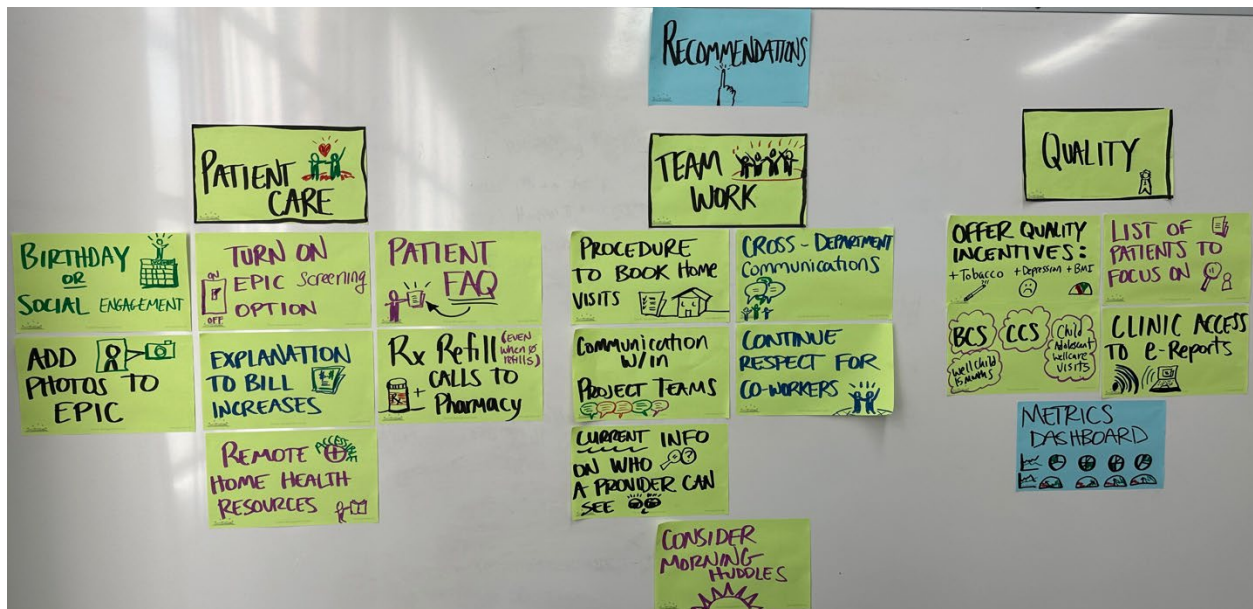 RECOMMENDATIONS
PATIENT
CARE
BIRTHDAY
OR
SOCIAL ENGAGEMENT
TURN ON
EPIC Screening
OPTION
ON
OFF
PATIENT
FAQ
ADD
PHOTOS TO
EPIC
EXPLANATION
TO BILL
INCREASES
Rx Refill (EVEN
When Ø
refills)
CALLS TO
Pharmacy
Rx
REMOTE
HOME HEALTH
RESOURCES
ACCESSIBLE
TEAM
WORK
PROCEDURE
TO BOOK Home
VISITS
CROSS-DEPARTMENT
Communications
Communication
W/IN
PROJECT TEAMS
CONTINUE
RESPECT FOR
CO-WORKERS
CURRENT INFO
ON WHO
A PROVIDER CAN
SEE
CONSIDER
MORNING
HUDDLES
QUALITY
OFFER QUALITY
INCENTIVES:
+Tobacco +Depression +BMI
LIST OF
PATIENTS TO
FOCUS ON
BCS
CCS
Child
Adolescent
Wellcare
VISITS
Well Child
15 Months
CLINIC ACCESS
TO e-Reports
METRICS
DASHBOARD